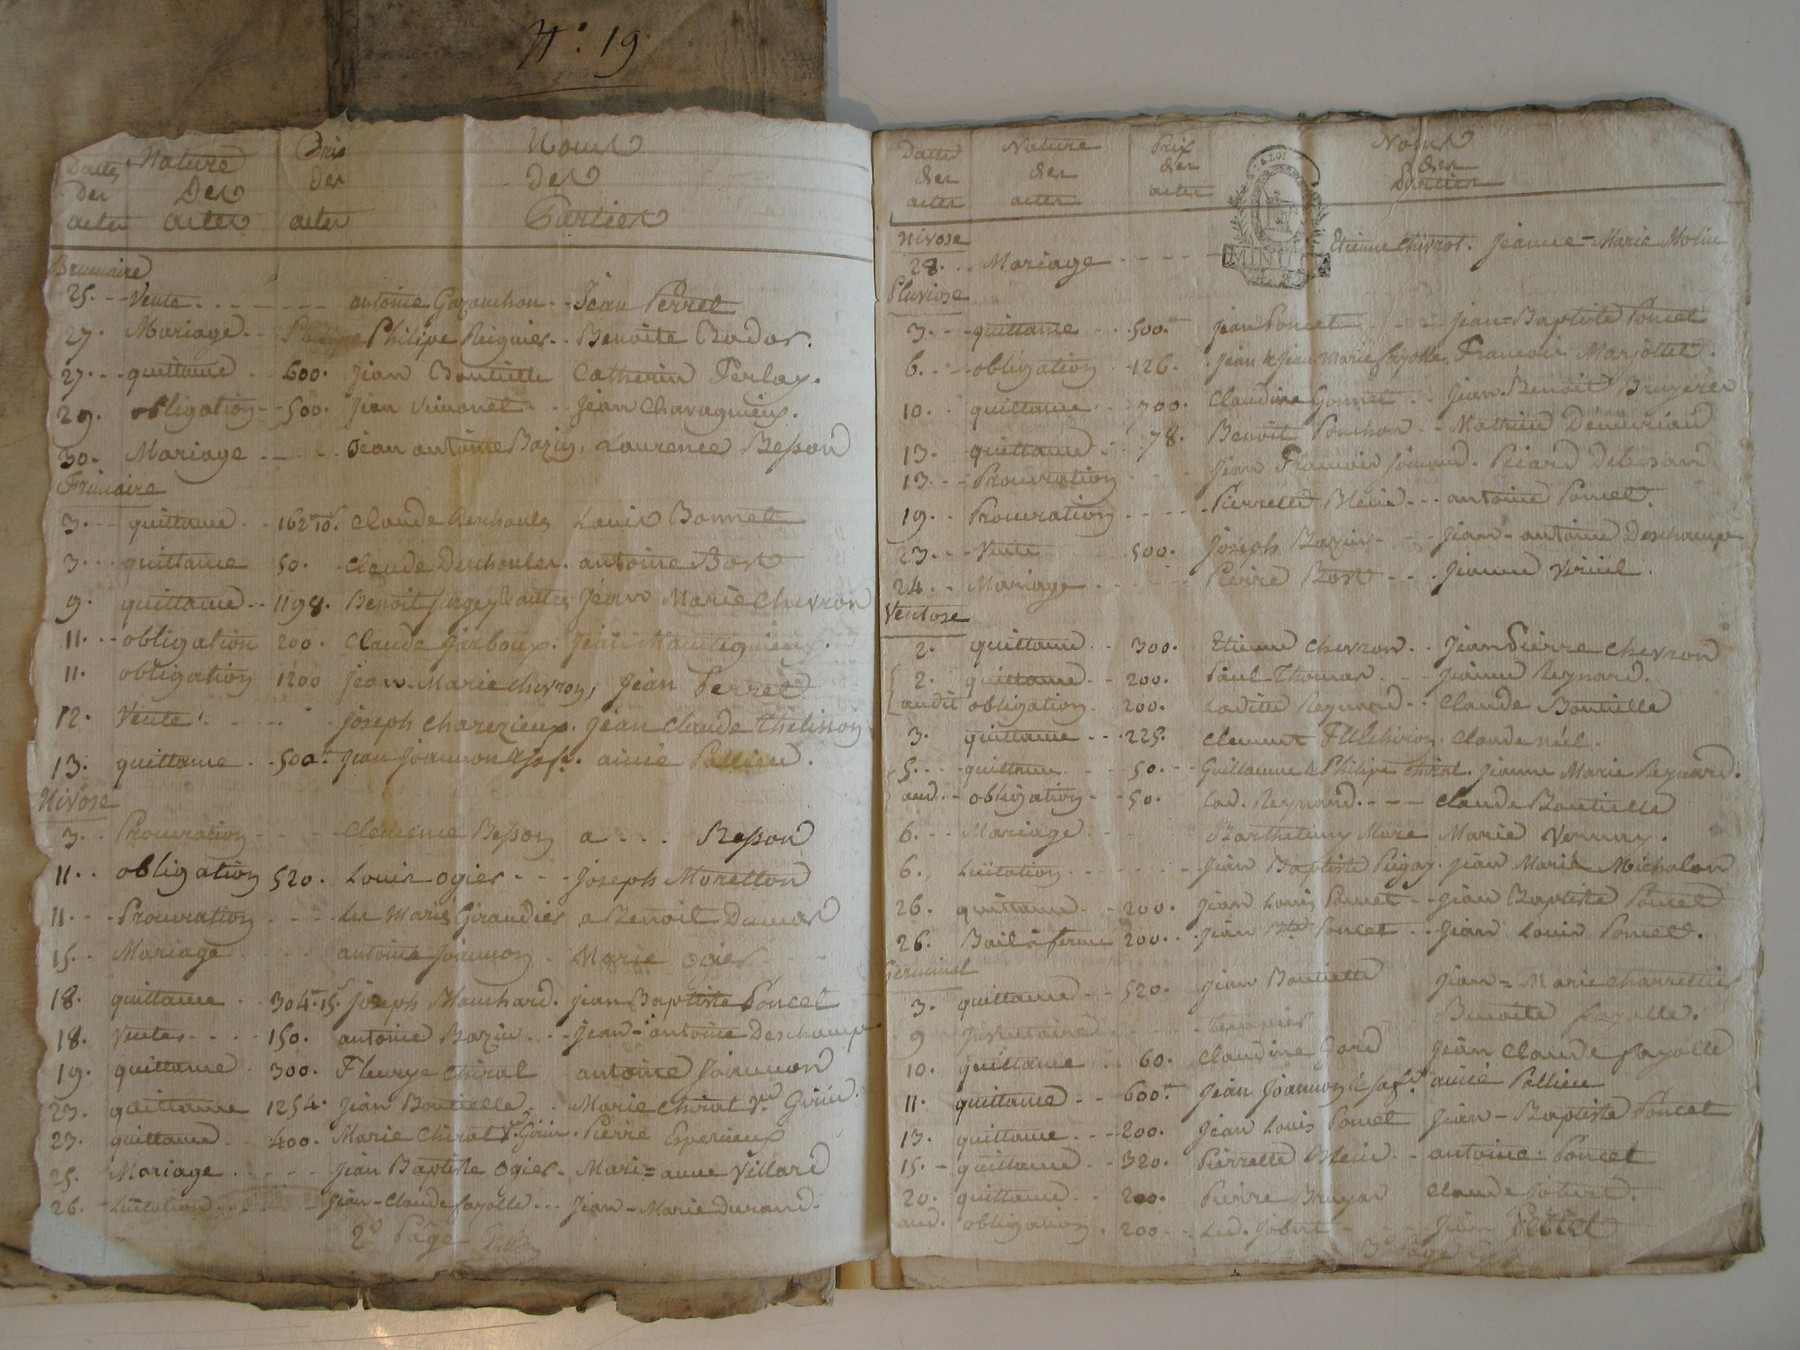 N.º 19
Dattes Nature Prix Noms
Des Des des Des
actes actes actes Parties
Brumaire
25. Vente antoine Gazanchon Jean Perret
27. Mariage Philipe Reignier Benoite Bador.
27. quittance 600. Jean Boutielle Catherin Ferlay.
29. obligation 500. Jean Vimonet Jean Charagnieux.
30. Mariage Jean antoine Bazin. Laurence Besson
Frimaire
3. quittance Claude Louis Bonnet
3. quittance 50. Claude antoine Bost
9. quittance 1198. Benoit & autres Jean Marie Chevron
11. obligation 200. Claude Jarboux. Jean
11. obligation 1200 Jean-Marie Chevron, Jean Perret
12. Vente. Joseph Charezieux. Jean Claude Thelisson
13. quittance 500 Jean Joannon & sa fe. aimé Pallieu.
Nivose
3. Procuration Clemence Besson a Besson
11. obligation 520. Louis ogier Joseph Moretton
11. Procuration Les Mariés Giraudier a Benoit Dumas
15. Mariage antoine Joannon. Marie Ogier
18. quittance 304. 15. Joseph Blanchard. Jean Baptiste Poncet
18. Ventes 150. antoine Bazin Jean-antoine Deschamps
19. quittance 300. Fleurye Chirat antoine Joannon
23. quittance 1254. Jean Boutielle Marie Chirat Ve. Girin.
23. quittance 400. Marie Chirat Ve. Girin. Pierre Esperieux
25. Mariage Jean Baptiste Ogier. Marie=anne Villard
26. Licitation Jean-Claude fayolle Jean-Marie Durand.
2e Page
Dattes Nature Prix Noms
des des des des
actes actes actes Parties
Nivose
28. Mariage Etienne Chirat. Jeanne=Marie Molin
MINUT
Pluviose
3. quittance 500. Jean Poncet Jean=Baptiste Poncet
6. obligation 126. Jean & Jean Marie fayolle. Francois Marjollet.
10. quittance 700. Claudine Gonnet Jean Benoit Bruyeres
13. quittance 78. Benoit Ponchon Mathieu
13. Procuration Jean Francois
19. Procuration Pierrette antoine Poncet.
23. Vente 500. Joseph Bazin Jean-antoine Deschamps
24. Mariage Pierre Bost Jeanne
Ventose
2. quittance 300. Etienne Chevron Jean Pierre Chevron
2. quittance 200. Paul Thomas Jeanne Reynard.
audit obligation 200. Ladite Reynard Claude Boutielle
3. quittance 225. Clement Claude néel.
5. quittance 50. Guillaume & Philipe Chirat. Jeanne Marie Reynard.
aud. obligation 50. Lad. Reynard. Claude Boutielle
6. Mariage Barthelemy Mure Marie Vernay.
6. Licitation Jean Baptiste Pugay. Jean Marie Michalon
26. quittance 200. Jean Louis Poncet Jean Baptiste Poncet
26. Bail à ferme 200. Jean Bte Poncet Jean Louis Poncet.
Germinal
3. quittance 520. Jean Boutielle Jean=Marie Charretier
9 Inventaire Benoite fayolle.
10. quittance 60. Claudine Gord Jean Claude fayolle
11. quittance 600 Jean Joannon & sa fe. aimé Pallieu
13. quittance 200. Jean Louis Poncet Jean-Baptiste Poncet
15. quittance 320. Pierrette antoine Poncet
20. quittance 200. Pierre Bruyas Claude Jobert.
aud. obligation. 200 Led. Jobert Jean
3e Page